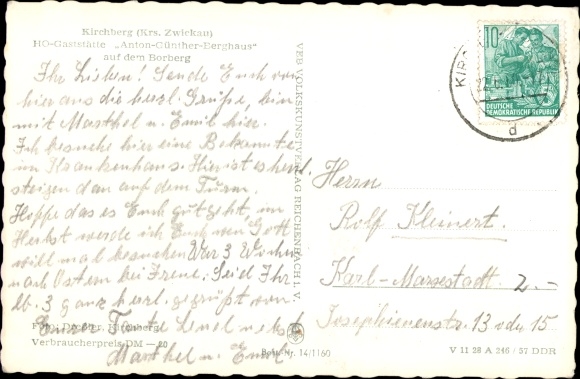 Kirchberg (Krs. Zwickau)
HO-Gaststätte „Anton-Günther-Berghaus"
auf dem Borberg
Ihr Lieben! Sende Euch von
hier aus die herzl. Grüße, bin
mit Marthel u. Emil hier.
Ich besuche hier eine Bekannte
im Krankenhaus. Hier ist es
steigen dan auf dem Turm.
Hoffe das es Euch gut geht, im
Herbst werde ich Euch wen Gott
will mal besuchen War 3 Wochen
nach Ostern bei Irene. Seid Ihr
lb. 3 ganz herzl. gegrüßt von
Eurer Tante nebst
Marthel u. Emil
Foto: Kirchberg
Verbraucherpreis DM —.20
VEB VOLKSKUNSTVERLAG REICHENBACH i. V.
Best.-Nr. 14/1160
10
DEUTSCHE
DEMOKRATISCHE REPUBLIK
d
Herrn
Rolf Kleinert.
Karl-Marxstadt. 2.-
Josephinenstr. 13 oder 15
V 11 28 A 246 / 57 DDR